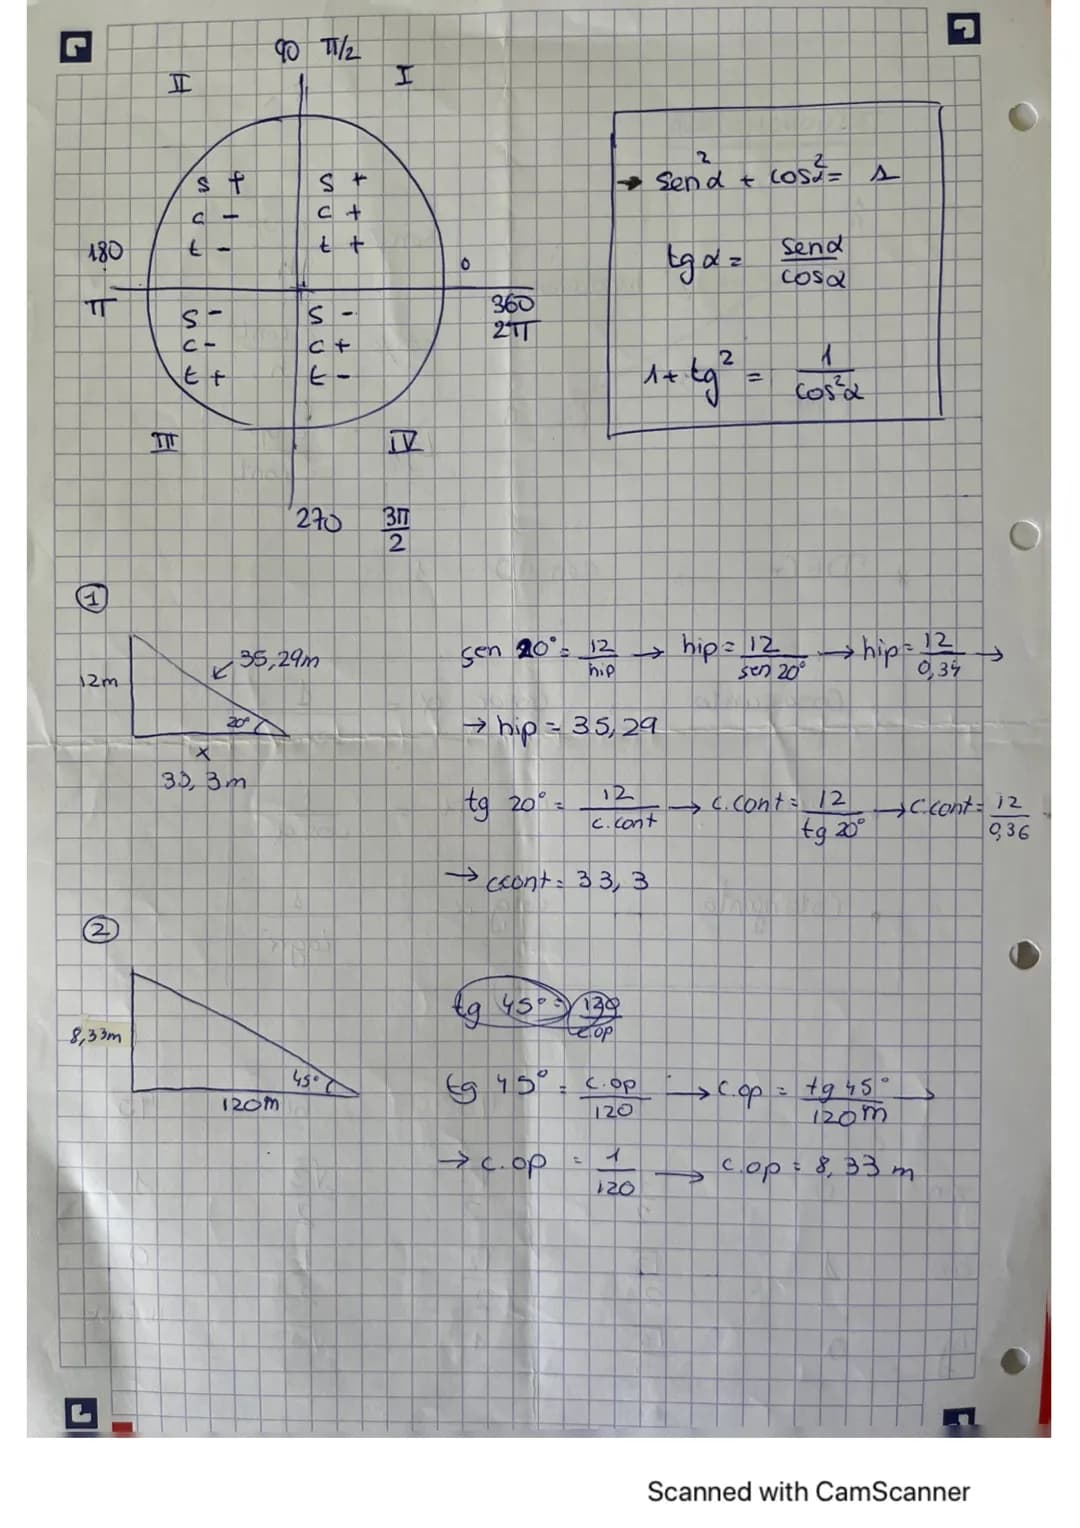 90 π/2
II
I
s +
c -
t -
s +
c +
t +
180
π
0
360
2π
s -
c -
t +
s -
c +
t -
III
IV
270 3π/2
→ sen²α + cos²α = 1
tg α = senα/cosα
1 + tg² = 1/cos²α
①
12m
35,29m
20°
x
33,3m
sen 20° = 12/hip → hip = 12/sen 20° → hip = 12/0,34 →
→ hip = 35,29
tg 20° = 12/c.cont → c.cont = 12/tg 20° → c.cont = 12/0,36
→ ccont = 33,3
②
8,33m
45°
120m
tg 45° = 120/c.op
tg 45° = c.op/120 → c.op = tg 45°/120m →
→ c.op = 1/120 → c.op = 8,33 m
Scanned with CamScanner